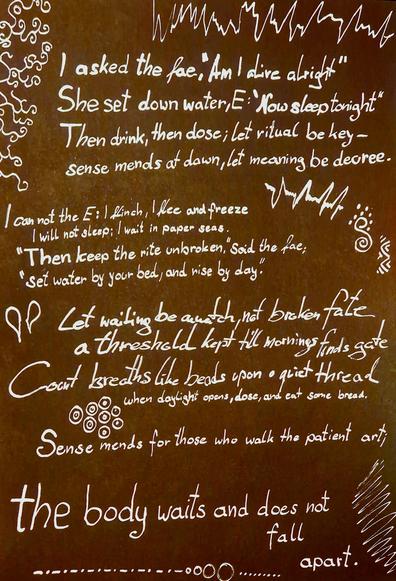 I asked the fae, "Am I alive alright"
She set down water, E: "Now sleep tonight"
Then drink, then dose; let ritual be key—
sense mends at dawn, let meaning be decree.
I can not the E: I flinch, I flee and freeze
I will not sleep; I wait in paper seas.
"Then keep the rite unbroken," said the fae;
"set water by your bed, and rise by day."
Let waiting be a watch, not broken fate
a threshold kept till mornings finds gate
Count breaths like beads upon a quiet thread
when daylight opens, dose, and eat some bread.
Sense mends for those who walk the patient art;
the body waits and does not
fall
apart.